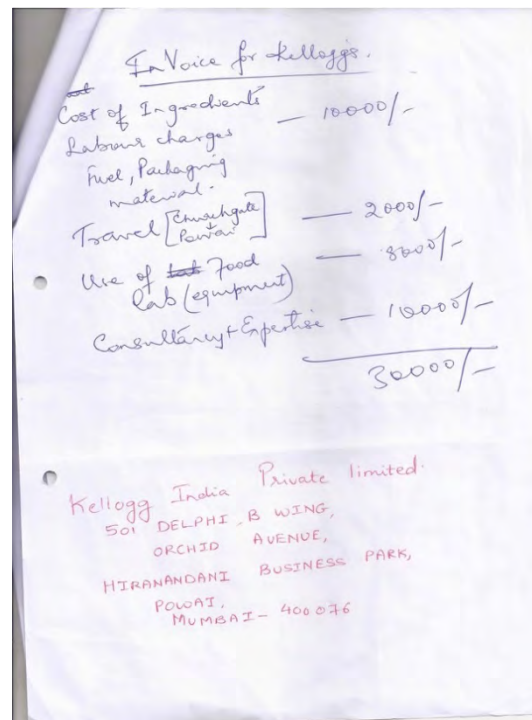 InVoice for Kelloggs.
Cost of Ingredients
Labour charges — 10000/-
Fuel, Packaging
material.
Travel [Churchgate — 2000/-
Powai]
Use of Food — 8000/-
lab (equipment)
Consultancy + Expertise — 10000/-
30000/-
Kellogg India Private limited.
501 DELPHI, B WING,
ORCHID AVENUE,
HIRANANDANI BUSINESS PARK,
POWAI,
MUMBAI - 400076